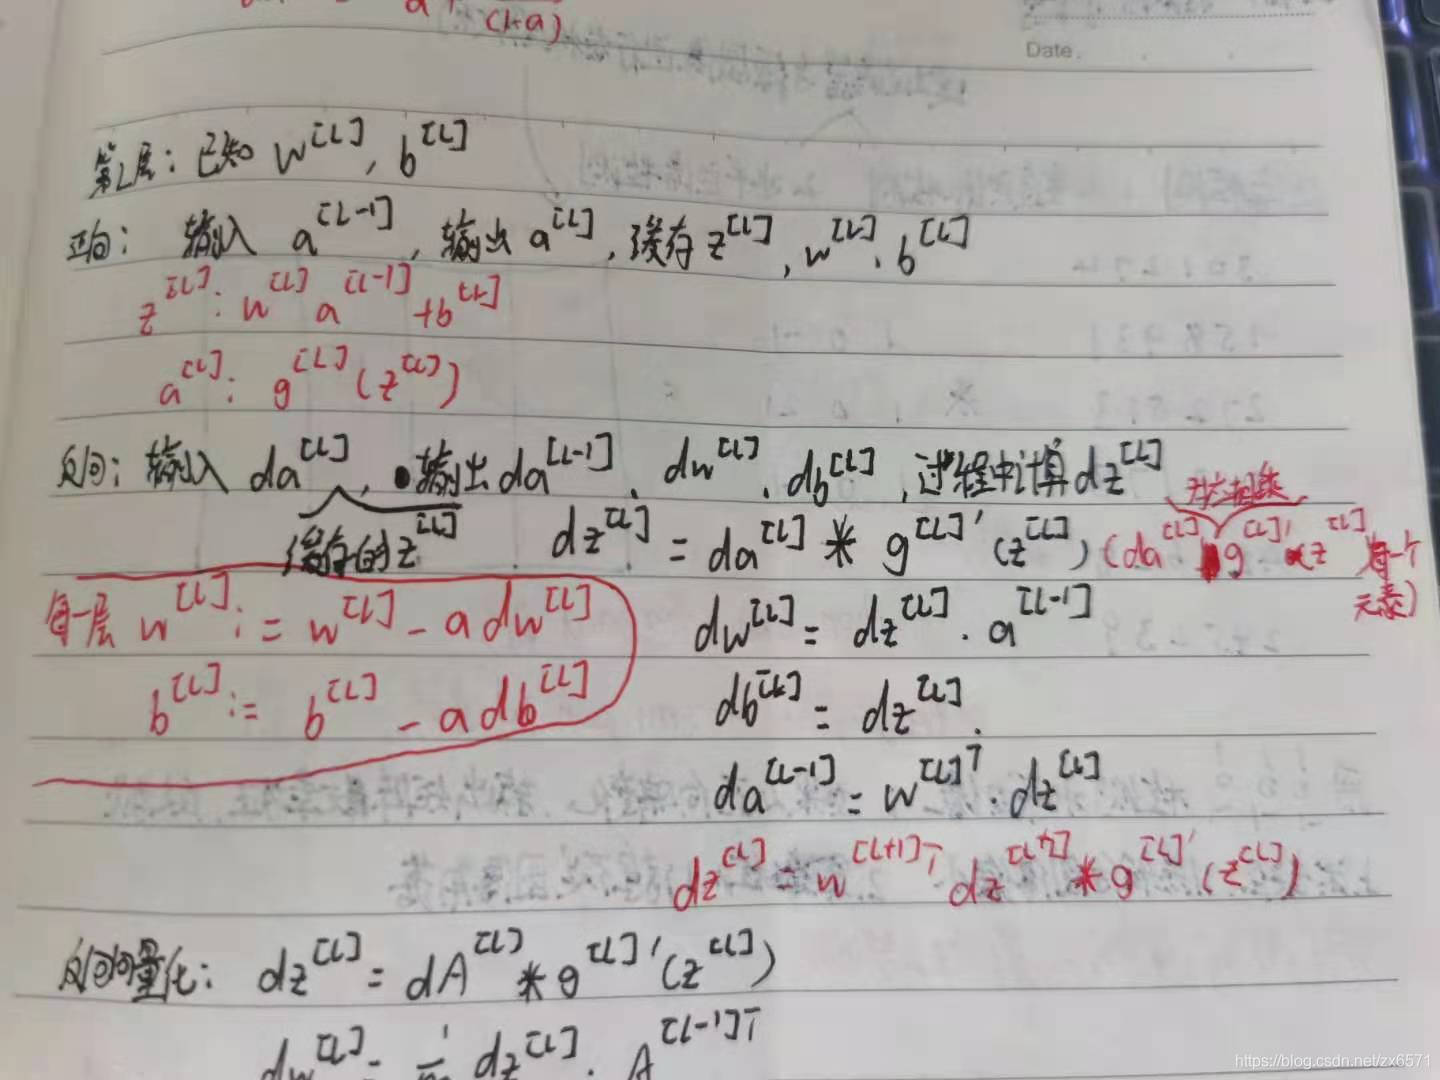 (1-a)
Date.
第L层：已知 w^[L], b^[L]
正向： 输入 a^[L-1], 输出 a^[L], 缓存 z^[L], w^[L], b^[L]
z^[L]: w^[L] a^[L-1] + b^[L]
a^[L]: g^[L](z^[L])
反向：输入 da^[L], 输出 da^[L-1]、dw^[L]、db^[L], 过程中计算 dz^[L]
对应相乘
缓存的 z^[L] dz^[L] = da^[L] * g^[L]'(z^[L]) (da^[L] g^[L]'(z^[L]) 每一个
元素)
每一层 w^[L] := w^[L] - a dw^[L] dw^[L] = dz^[L] · a^[L-1]
b^[L] := b^[L] - a db^[L] db^[L] = dz^[L].
da^[L-1] = w^[L]T · dz^[L]
dz^[L] = w^[L+1]T dz^[L+1] * g^[L]'(z^[L])
反向向量化： dz^[L] = dA^[L] * g^[L]'(z^[L])
dw^[L] = 1/m dz^[L] · A^[L-1]T
https://blog.csdn.net/zx6571